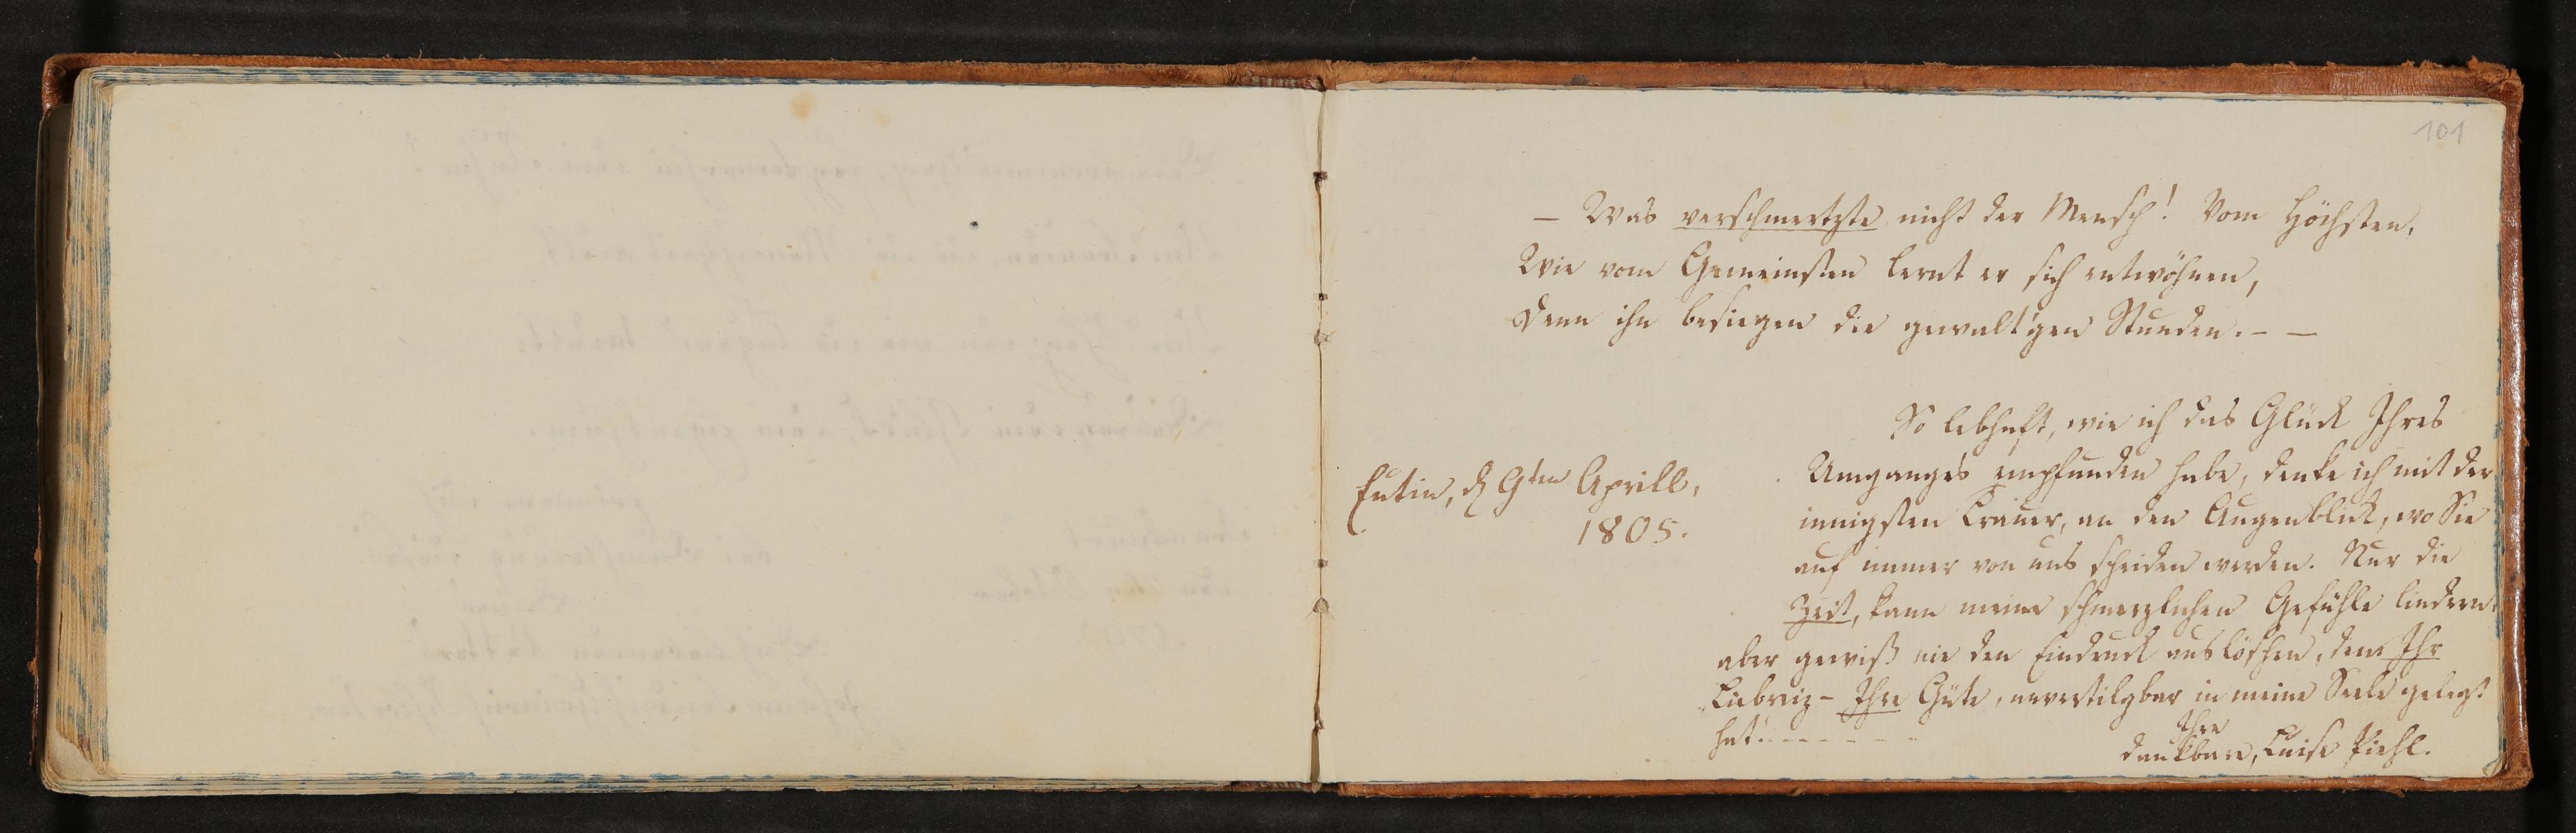 101
— Was verschmertzte nicht der Mensch! Vom Höchsten,
Wie vom Gemeinsten lernt er sich entwöhnen,
Denn ihn besiegen die gewalt'gen Stunden. — —
So lebhaft, wie ich das Glück Ihres
Umgange's empfunden habe, denke ich mit der
innigsten Trauer, an den Augenblick, wo Sie
auf immer von uns scheiden werden. Nur die
Zeit, kann meine schmerzlichen Gefühle lindern
aber gewiß nie den Eindruck auslöschen, den Ihr
Liebreiz - Ihre Güte, unvertilgbar in meine Seele gelegt
hat! - - - - - - -
Eutin, d 9ten Aprill,
1805.
Ihre
dankbare, Luise Piehl.